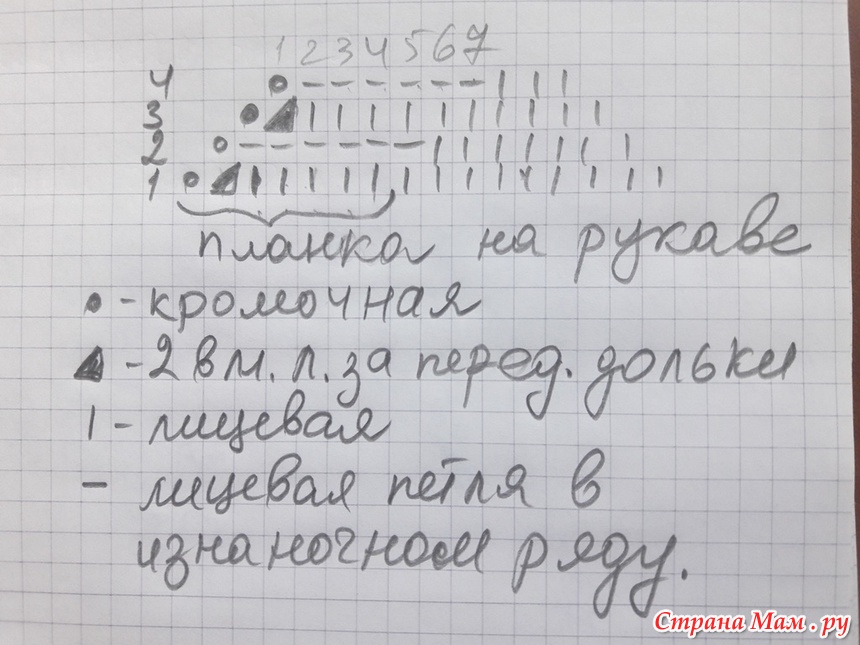 1 2 3 4 5 6 7
4 • – – – – – – | | |
3 • ◢ | | | | | | | | | |
2 • – – – – – – | | | | | | |
1 • ◢ | | | | | | | | | | | | | |
планка на рукаве
• - кромочная
◢ - 2 вм. л. за перед. дольки
| - лицевая
– лицевая петля в
изнаночном ряду.
Страна Мам . ру